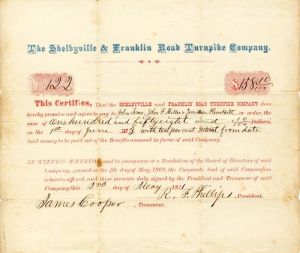 The Shelbyville & Franklin Road Turnpike Company.
122 $158.10
This Certifies, That the SHELBYVILLE and FRANKLIN ROAD TURNPIKE COMPANY does
hereby promise and agree to pay to John Jones, John F. Miller & Jonathan Plunkett, or order, the
sum of One hundred and fifty eight and Dollars,
on the 1st day of June 1873, with ten per cent Interest from date
Said money to be paid out of the Benefits assessed in favor of said Company.
IN WITNESS WHEREOF and in pursuance of a Resolution of the Board of Directors of said
Company, passed on the day of May, 1869, the Corporate Seal of said Corporation
hereto affixed, and these presents duly signed by the President and Treasurer of said
Company this 2nd day of May 1871
R. F. Phillips President.
James Cooper, Treasurer.